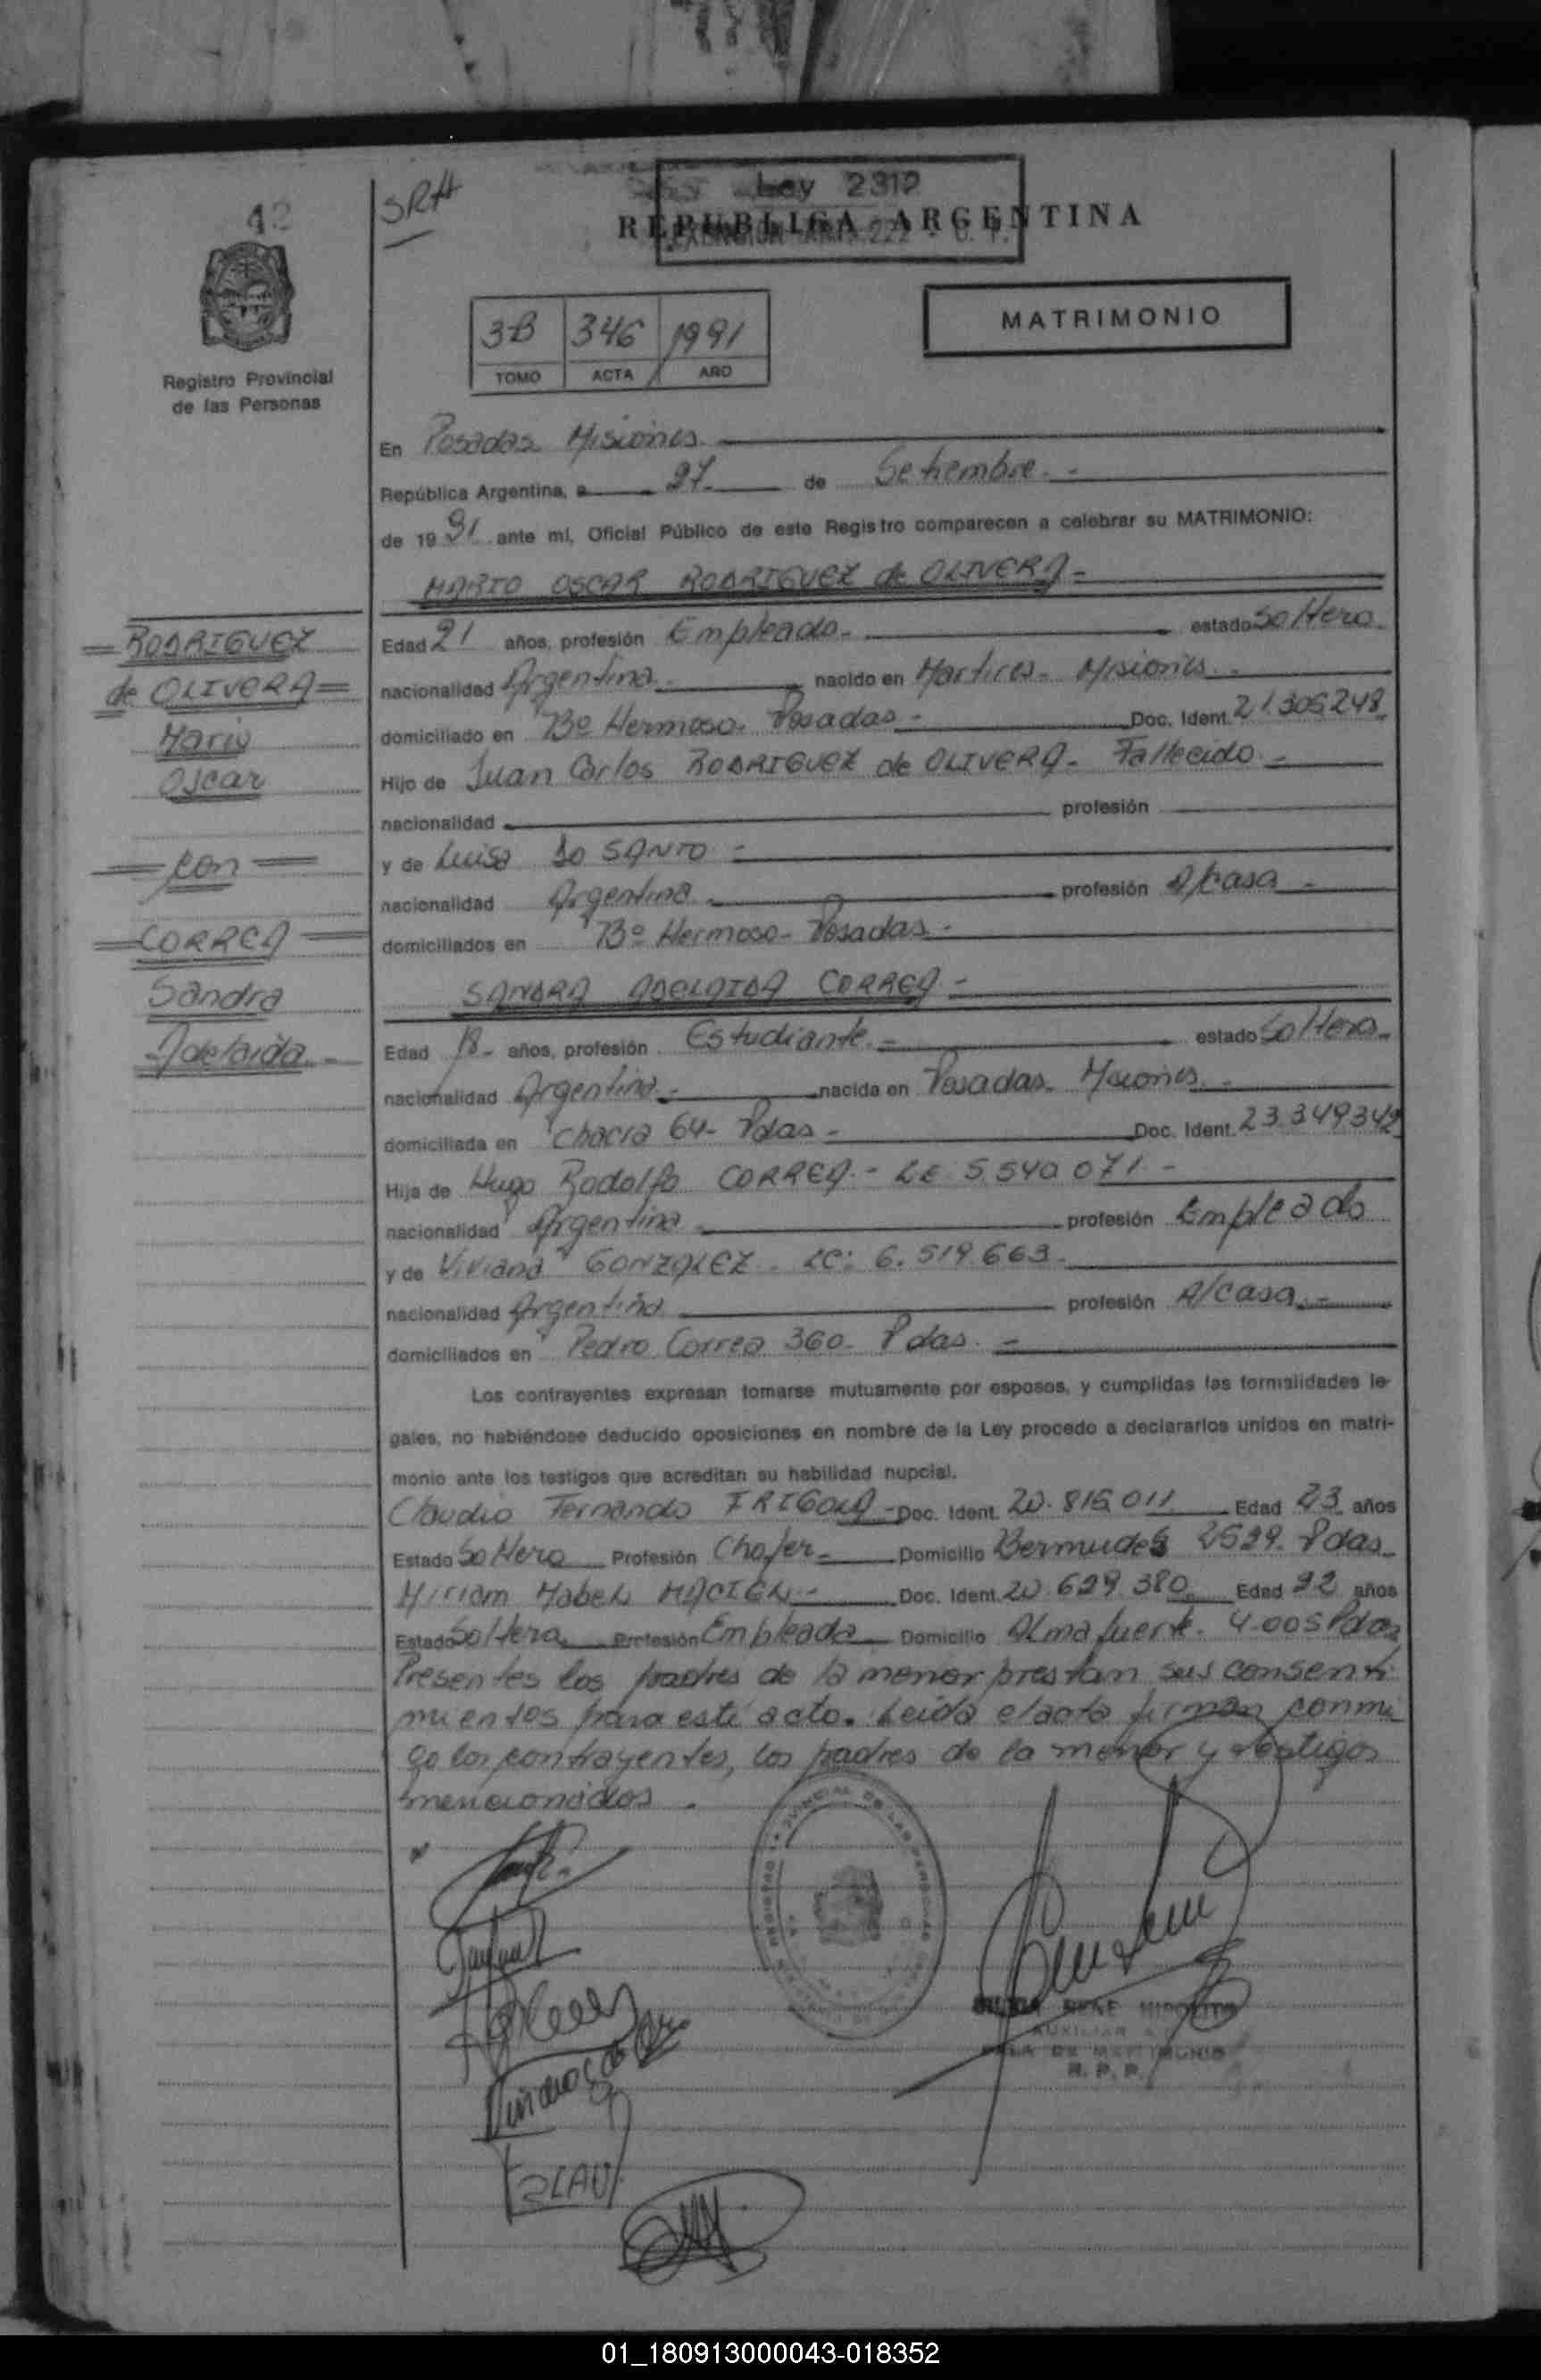 42
SRH
Ley 2312
REPUBLICA ARGENTINA
MATRIMONIO
3-B 346 1991
TOMO ACTA AÑO
Registro Provincial
de las Personas
En Posadas Misiones
República Argentina, a 27 de Setiembre.-
de 1991 ante mí, Oficial Público de este Registro comparecen a celebrar su MATRIMONIO:
MARIO OSCAR RODRIGUEZ de OLIVERA-
RODRIGUEZ
de OLIVERA
Mario
Oscar
con
CORREA
Sandra
Adelaida.-
Edad 21 años, profesión Empleado- estado Soltero.
nacionalidad Argentina.- nacido en Martires- Misiones.-
domiciliado en Bº Hermoso- Posadas- Doc. Ident. 21.305.248
Hijo de Juan Carlos RODRIGUEZ de OLIVERA- Fallecido.-
nacionalidad profesión
y de Luisa DO SANTO-
nacionalidad Argentina.- profesión A/casa-
domiciliados en Bº Hermoso- Posadas-
SANDRA ADELAIDA CORREA-
Edad 18- años, profesión Estudiante.- estado Soltera-
nacionalidad Argentina.- nacida en Posadas- Misiones.-
domiciliada en Chacra 64- Pdas- Doc. Ident. 23.349342
Hija de Hugo Rodolfo CORREA.- LE 5.540.071.-
nacionalidad Argentina profesión Empleado
y de Viviana GONZALEZ- LC: 6.519.663.
nacionalidad Argentina profesión A/casa.-
domiciliados en Pedro Correa 360- Pdas.-
Los contrayentes expresan tomarse mutuamente por esposos, y cumplidas las formalidades le-
gales, no habiéndose deducido oposiciones en nombre de la Ley procedo a declararlos unidos en matri-
monio ante los testigos que acreditan su habilidad nupcial.
Claudio Fernando FRIGOLA- Doc. Ident. 20.816.011 Edad 23 años
Estado Soltero Profesión Chofer- Domicilio Bermudes 2529. Pdas-
Miriam Mabel MACIEL- Doc. Ident. 20.629.380. Edad 22 años
Estado Soltera Profesión Empleada Domicilio Almafuerte. 4.005 Pdas
Presentes los padres de la menor prestan sus consenti
mientos para este acto. Leida el acta firman conmi
go los contrayentes, los padres de la menor y testigos
mencionados.
SALA DE MATRIMONIO
R. P. P.
01_180913000043-018352